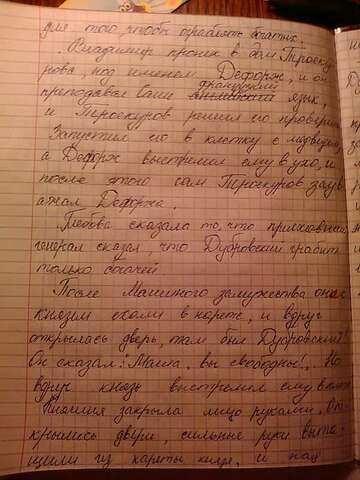 для того, чтобы грабить богатых.
Владимир проник в дом Троеку
рова, под именем Дефорж, и он
французский
преподавал Саше английский язык,
и Троекуров решил его проверить
Запустил его в клетку с медведем,
а Дефорж выстрелил ему в ухо, и
после этого сам Троекуров заув
ажал Дефоржа.
Глебова сказала то, что приехавший
генерал сказал, что Дубровский грабит
только богачей
После Машиного замужества она с
князем ехали в карете, и вдруг
открылась дверь, там был Дубровский!
Он сказал: "Маша, вы свободны!". Но
вдруг князь выстрелил ему в
закрыла лицо руками. От
крылись двери, сильные руки выта
щили из кареты князя, и над